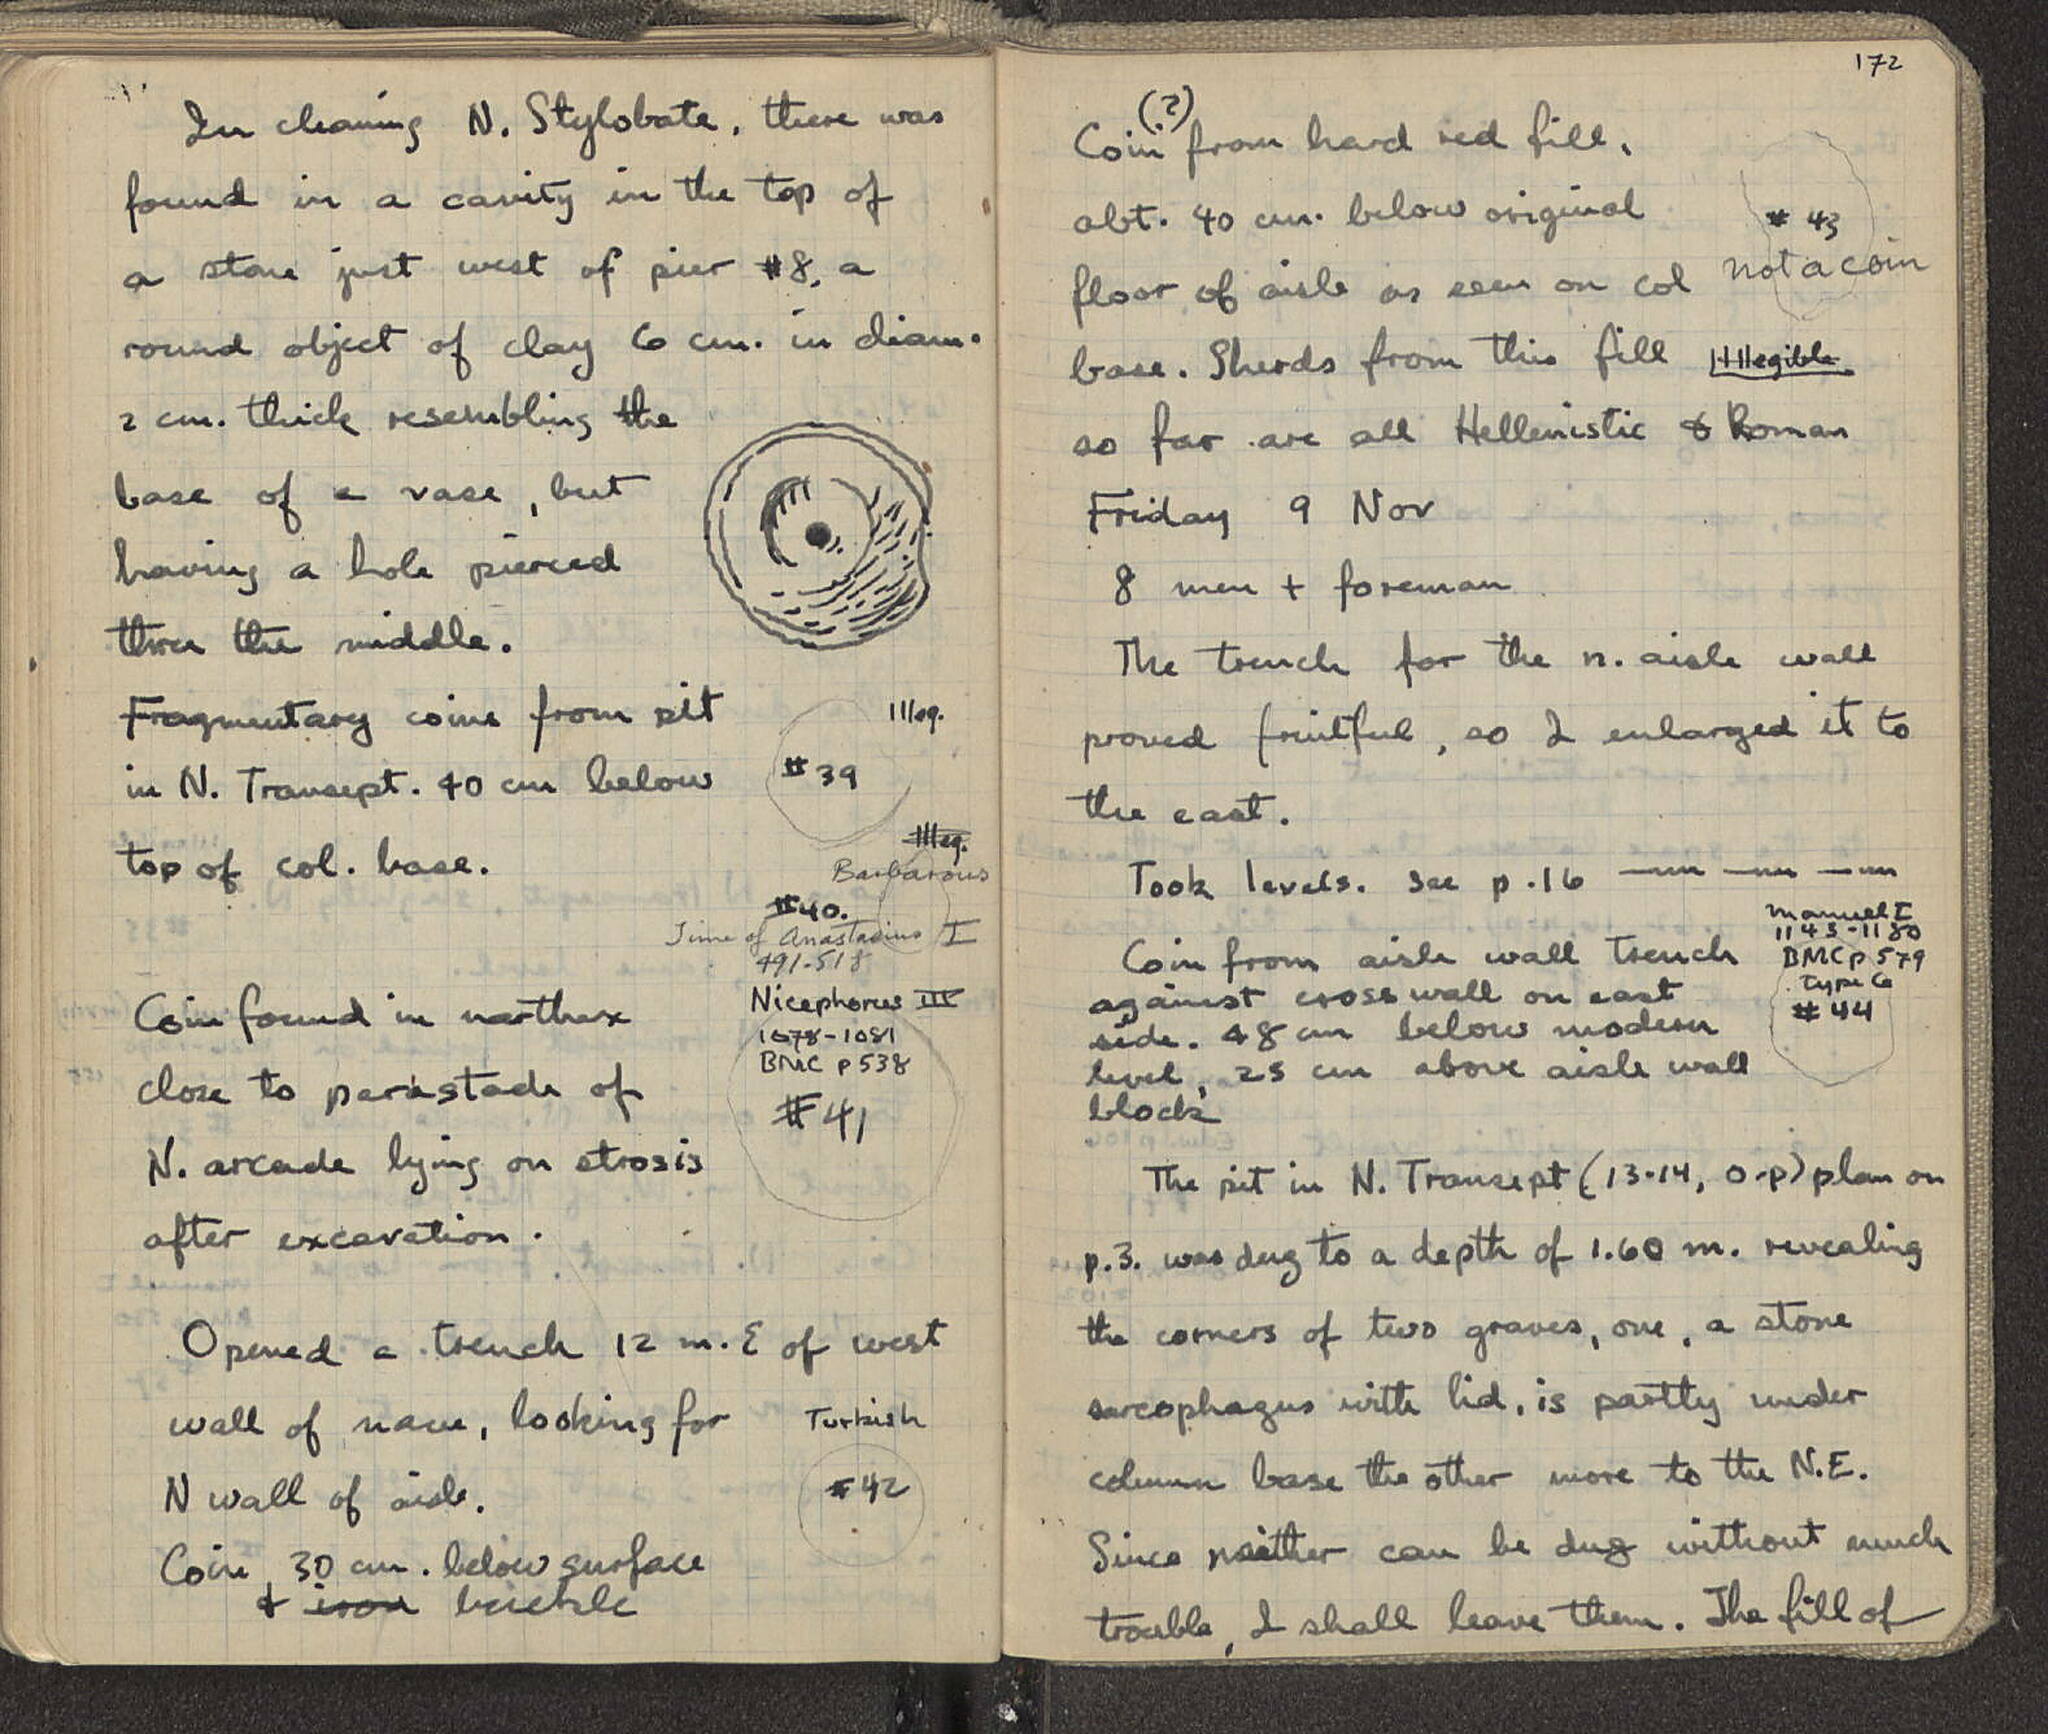 In cleaning N. Stylobate, there was
found in a cavity in the top of
a stone just west of pier #8, a
round object of clay 6 cm. in diam.
2 cm. thick resembling the
base of a vase, but
having a hole pierced
thru the middle.
Fragmentary coins from pit
in N. Transept. 40 cm below
top of col. base.
Illeg.
#39
Illeg.
Barbarous
#40.
Time of Anastasius I
491-518
Coin found in narthex
close to parastade of
N. arcade lying on strosis
after excavation.
Nicephorus III
1078-1081
BMC p 538
#41
Opened a trench 12 m. E of west
wall of nave, looking for
N wall of aisle.
Coin, 30 cm. below surface
& iron buckle
Turkish
#42
172
Coin (?) from hard red fill,
abt. 40 cm. below original
floor of aisle as seen on col
base. Sherds from this fill
so far are all Hellenistic & Roman
# 43
not a coin
Illegible
Friday 9 Nov
8 men + foreman
The trench for the n. aisle wall
proved fruitful, so I enlarged it to
the east.
Took levels. see p. 16
Coin from aisle wall trench
against cross wall on east
side. 48 cm below modern
level, 25 cm above aisle wall
block
Manuel I
1143-1180
BMC p 579
type 6
#44
The pit in N. Transept (13-14, O-P) plan on
p. 3. was dug to a depth of 1.60 m. revealing
the corners of two graves, one, a stone
sarcophagus with lid, is partly under
column base the other more to the N.E.
Since neither can be dug without much
trouble, I shall leave them. The fill of